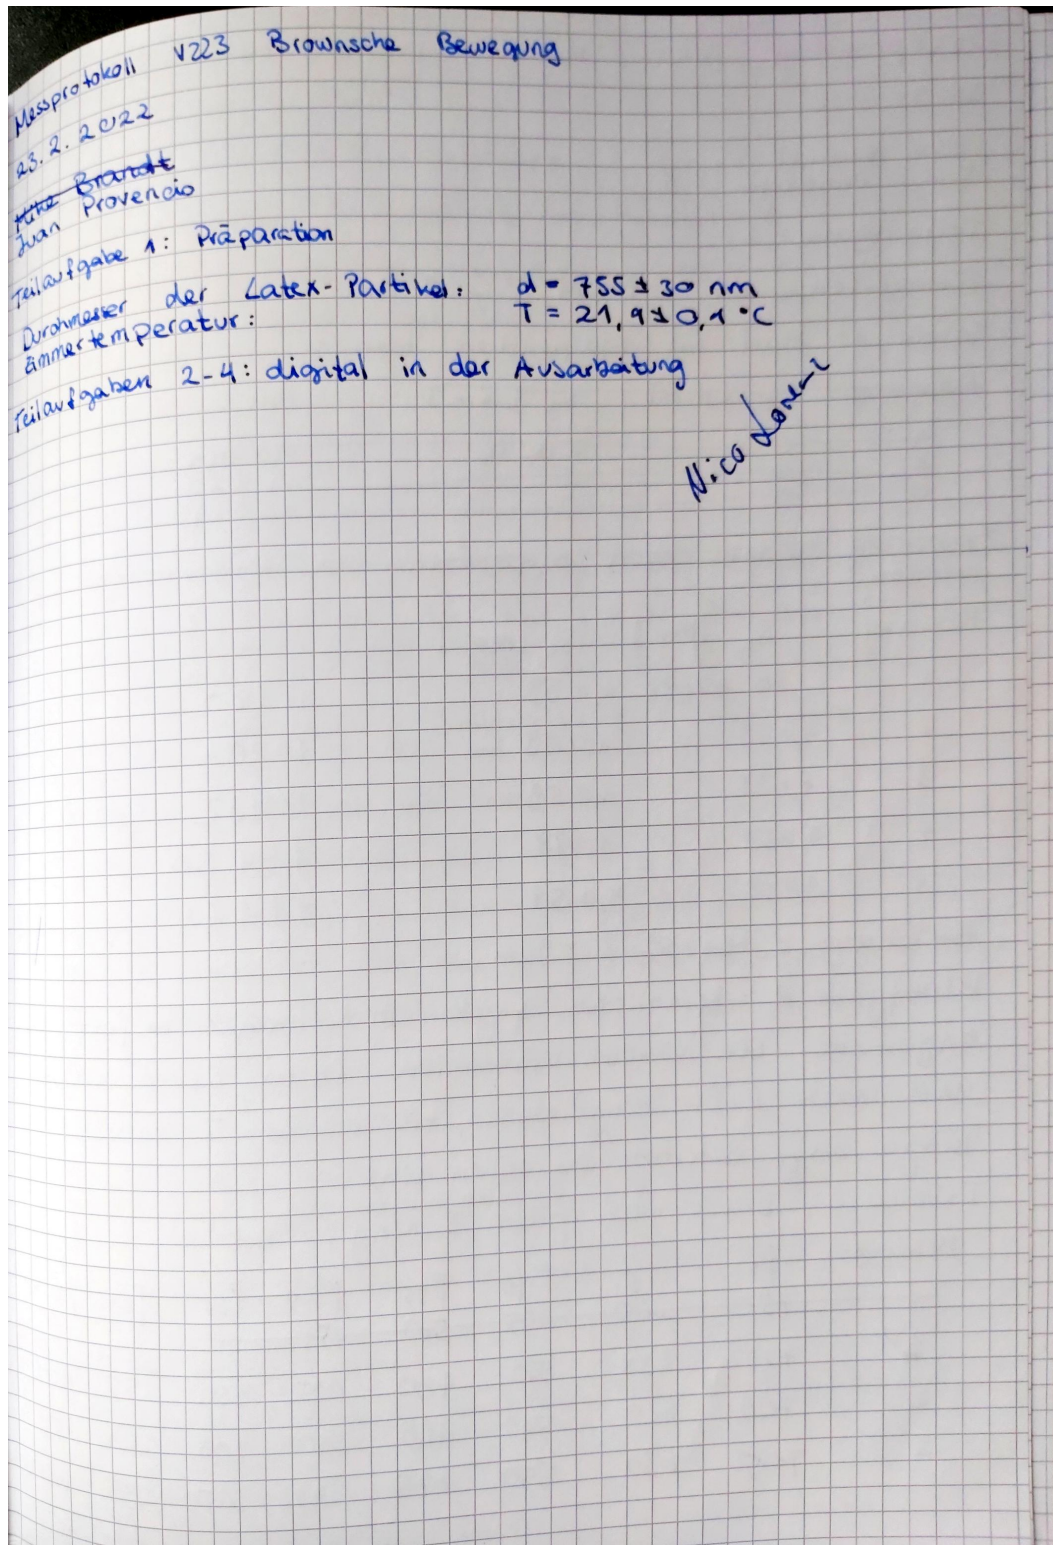 Messprotokoll V223 Brownsche Bewegung
23.2.2022
Mike Brandt
Juan Provencio
Teilaufgabe 1: Präparation
Durchmesser der Latex-Partikel: d = 755 ± 30 nm
ämmertemperatur: T = 21,9 ± 0,1 °C
Teilaufgaben 2-4: digital in der Ausarbeitung
Nico